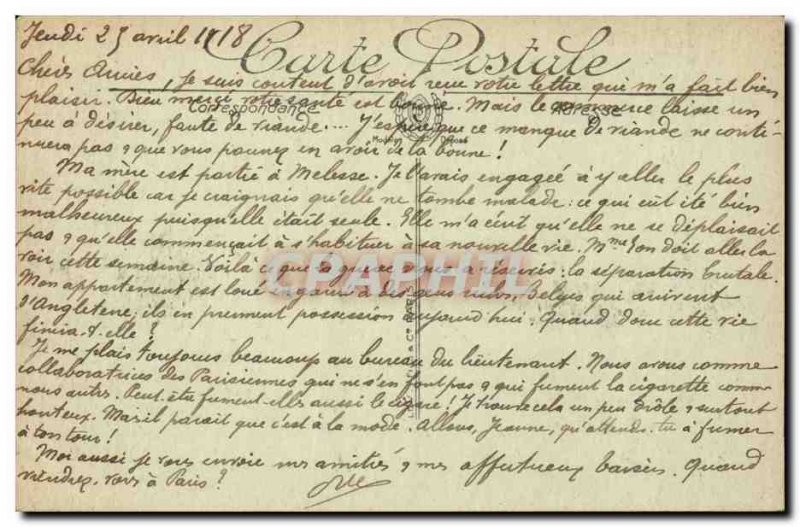 Jeudi 25 avril 1918
Carte Postale
Chères Amies, je suis content d'avoir reçu votre lettre qui m'a fait bien
Correspondance
Adresse
plaisir. Bien merci, votre santé est bonne. Mais le commerce laisse un
peu à désirer, faute de viande.... J'espère que ce manque de viande ne conti-
nuera pas & que vous pourrez en avoir de la bonne!
Ma mère est partie à Melesse. Je l'avais engagée à y aller le plus
vite possible car je craignais qu'elle ne tombe malade: ce qui eût été bien
malheureux puisqu'elle était seule. Elle m'a écrit qu'elle ne se déplaisait
pas & qu'elle commençait à s'habituer à sa nouvelle vie. Mme doit aller la
voir cette semaine. Voilà ce que la guerre nous a réservés: la séparation brutale.
Mon appartement est loué en garni à des gens Belges qui arrivent
d'Angleterre; ils en prennent possession aujourd'hui. Quand donc cette vie
finira-t-elle?
Je me plais toujours beaucoup au bureau du lieutenant. Nous avons comme
collaboratrices des Parisiennes qui ne s'en font pas & qui fument la cigarette comme
nous autres. Peut-être fument-elles aussi le cigare! Je trouve cela un peu drôle & surtout
honteux. Mais il paraît que c'est à la mode. Allons, Jeanne, qu'attends-tu à fumer
à ton tour!
Moi aussi je vous envoie mes amitiés & mes affectueux baisers. Quand
viendrez-vous à Paris?
CPAPHIL